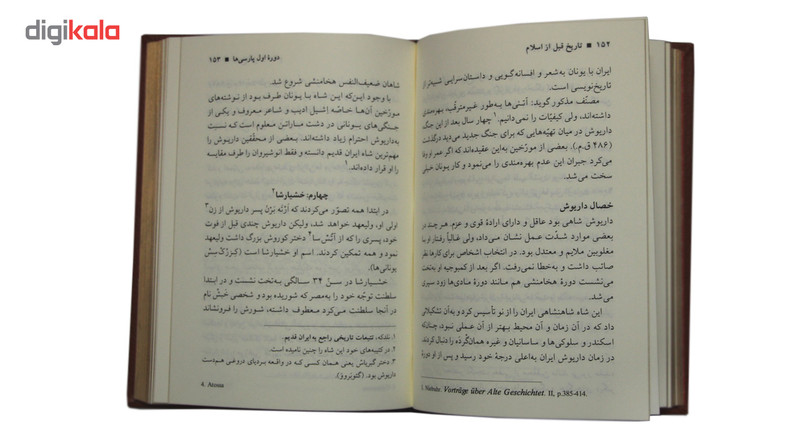 digikala
۱۵۲ ■ تاریخ قبل از اسلام
ایران با یونان به‌شعر و افسانه‌گویی و داستان‌سرایی شبیه‌تر از
تاریخ‌نویسی است.
مصنّف مذکور گوید: آتنی‌ها به‌طور غیرمترقّب بهره‌مندی
داشته‌اند، ولی کیفیّات را نمی‌دانیم.۱ چهار سال بعد از این جنگ
داریوش در میان تهیّه‌هایی که برای جنگ جدید می‌دید درگذشت
(۴۸۶ ق.م.). بعضی از مورّخین به‌این عقیده‌اند که اگر عمر او وفا
می‌کرد جبران این عدم بهره‌مندی را می‌نمود و کار یونان خیلی
سخت می‌شد.
خصال داریوش
داریوش شاهی بود عاقل و دارای ارادهٔ قوی و عزم. هر چند در
بعضی موارد شدّت عمل نشان می‌داد، ولی غالباً رفتار او با
مغلوبین ملایم و معتدل بود. در انتخاب اشخاص برای کارها نظر
صائب داشت و به‌خطا نمی‌رفت. اگر بعد از کمبوجیه او به‌تخت
نمی‌نشست دورهٔ هخامنشی هم مانند دورهٔ مادی‌ها زود سپری
می‌شد.
این شاه شاهنشاهی ایران را از نو تأسیس کرد و به‌آن تشکیلاتی
داد که در آن زمان و آن محیط بهتر از آن عملی نبود، چنان‌که
اسکندر و سلوکی‌ها و ساسانیان و غیره همان‌گَرده را دنبال کردند.
در زمان داریوش ایران به‌اعلی درجهٔ خود رسید و پس از او دورهٔ
1. Niebuhr. Vorträge über Alte Geschichtet. II, p.385-414.
دورهٔ اول پارسی‌ها ■ ۱۵۳
شاهان ضعیف‌النفس هخامنشی شروع شد.
با وجود این‌که این شاه با یونان طرف بود از نوشته‌های
مورّخین آن‌ها خاصّه اِشیل ادیب و شاعر معروف و یکی از
جنگی‌های یونانی در دشت ماراتن معلوم است که نسبت
به‌داریوش احترام زیاد داشته‌اند. بعضی از محقّقین داریوش را
مهم‌ترین شاه ایران قدیم دانسته و فقط انوشیروان را طرف مقایسه
با او قرار داده‌اند.۱
چهارم: خشیارشا۲
در ابتدا همه تصوّر می‌کردند که اَرْتَه بَرْن پسر داریوش از زن۳
اولی او، ولیعهد خواهد شد، ولیکن داریوش چندی قبل از فوت
خود، پسری را که از آتُسّ سا۴ دختر کوروش بزرگ داشت ولیعهد
نمود و همه تمکین کردند. اسم او خشیارشا است (کِزِرْک‌سِسْ
یونانی‌ها).
خشیارشا در سنّ ۳۴ سالگی به‌تخت نشست و در ابتدا
سلطنت توجّه خود را به‌مصر که شوریده بود و شخصی خَبیش نام
در آنجا سلطنت می‌کرد معطوف داشته، شورش را فرونشاند
۱. نلدکه، تتبعات تاریخی راجع به ایران قدیم.
۲. در کتیبه‌های خود این شاه را چنین نامیده است.
۳. دختر گبریاش یعنی همان کسی که در واقعه بردیای دروغی هم‌دست
داریوش بود. (گئوبَروو).
4. Atossa